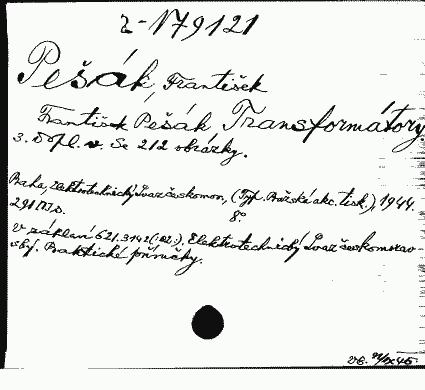 2-N79121
Pešák, František
František Pešák, Transformátory.
3. Dopl. v. Se 212 obrázky.
Praha, Elektrotechnický Svaz českomor., (Typ. Pražská akc. tisk.), 1944.
8°.
291 s.
V záhlaví 621.3142(:02.), Elektrotechnický Svaz českomorav
ský. Praktické příručky.